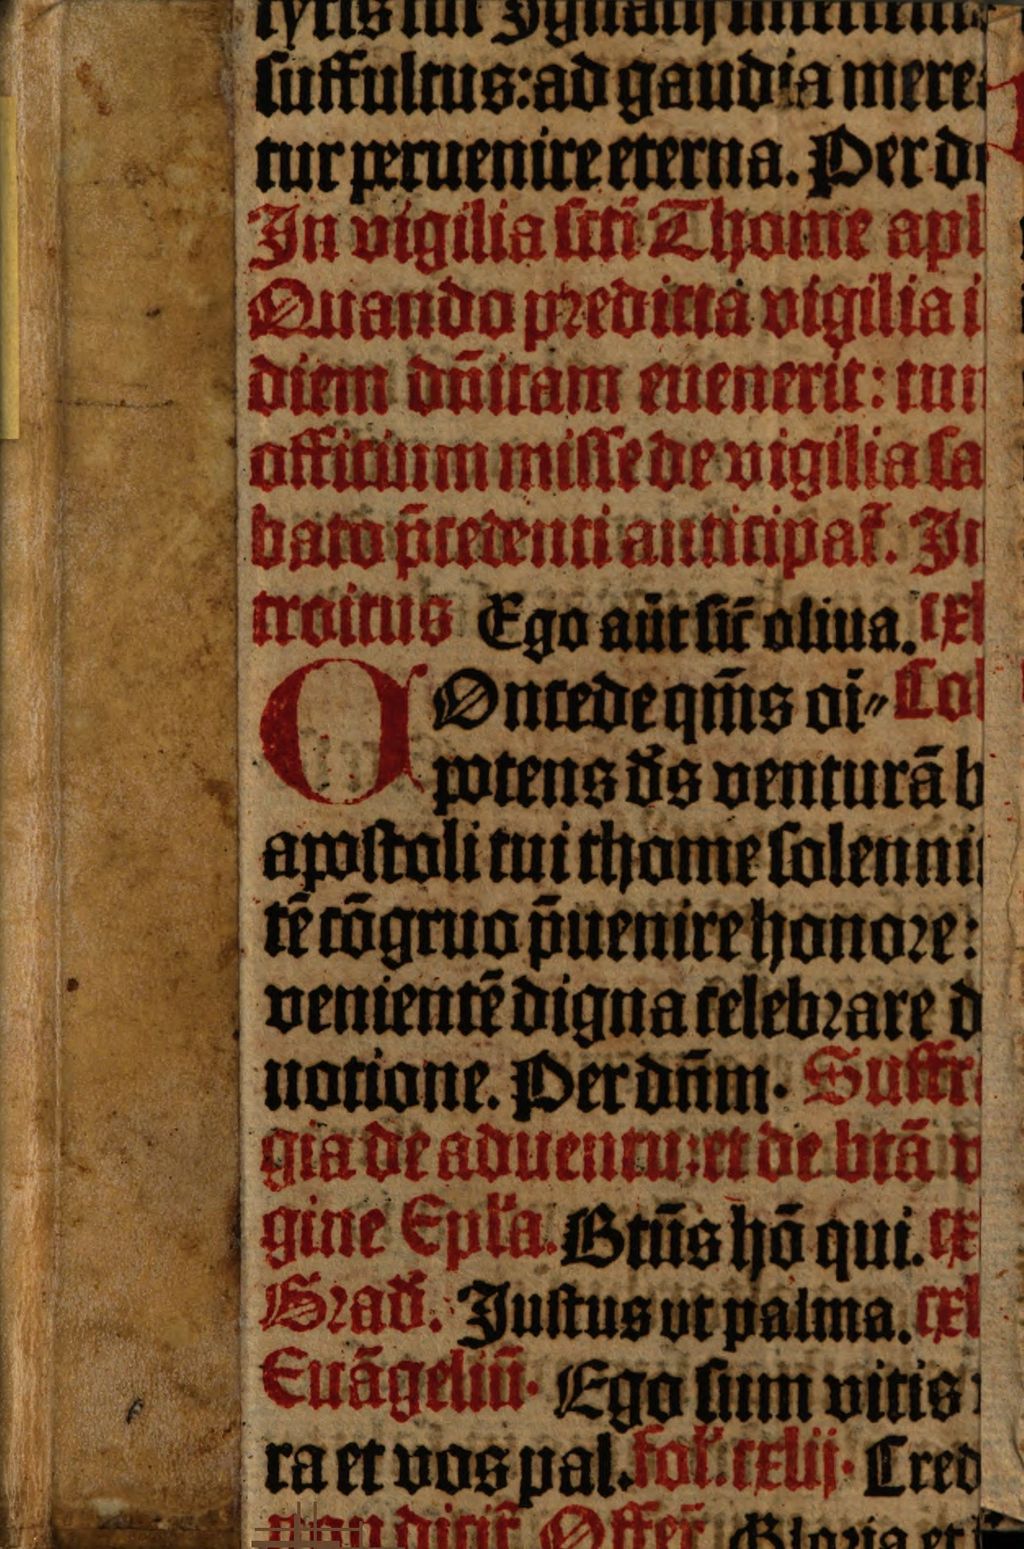 tyris tui Ignatij interuen
suffultus: ad gaudia mere
tur peruenire eterna. Per d
In vigilia scti Thome apl
Quando predicta vigilia i
diem dñicam euenerit: tun
officium misse de vigilia sa
bato p̃cedenti anticipat̃. In
troitus Ego aũt sic̃ oliua. cxl
COncede qm̃s oi⸗ Col
potens de᷒s venturã b
apostoli tui thome solenni
tẽ cõgruo p̃uenire honore:
venientẽ digna celebrare d
uotione. Per dñm. Suffra
gia de aduentu: et de btã v
gine Epl̃a. Btũs hõ qui. cx
Grad̃. Justus ut palma. cxl
Euãgeliũ. Ego sum vitis
ra et vos pal. fol̃. cxlij. Cred
non dicit̃ Offer̃. Gloria et